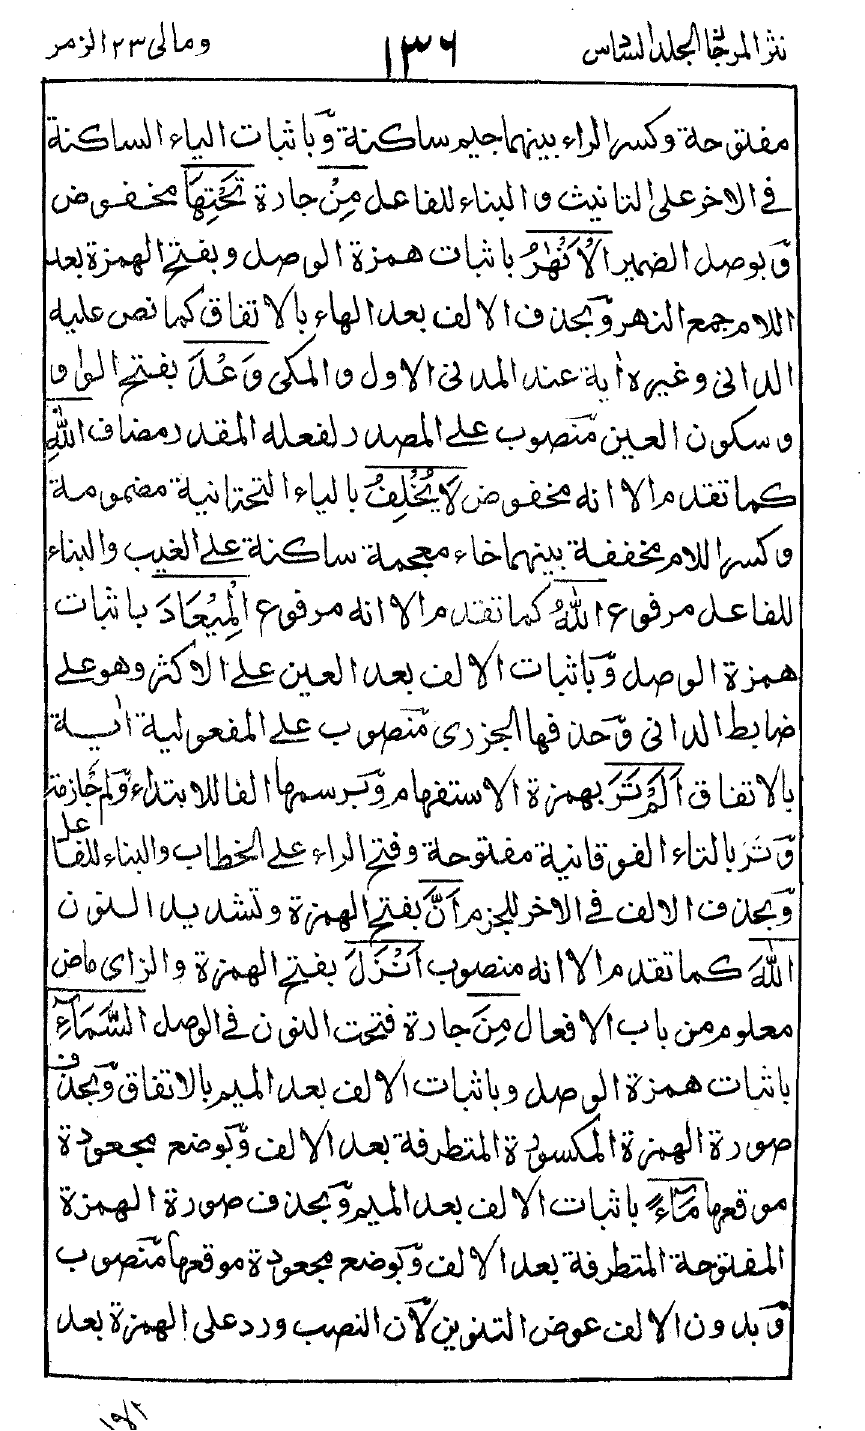 نثر المرجان الجلد السادس ١٣٦ ومالى ٢٣ الزمر
مفتوحة وكسر الراء بينهما جيم ساكنة وّباثبات الياء الساكنة
فى الاخر على التانيث والبناء للفاعل مِنْ جادة تَحْتِهَا مخفوض
وّبوصل الضمير الْاَنْهٰرُ باثبات همزة الوصل وبفتح الهمزة بعد
اللام جمع النهر وّبحذف الالف بعد الهاء بالاتفاق كما نص عليه
الدانى وغيره اٰية عند المدنى الاول والمكى وَعْدَ بفتح الواو
وسكون العين مّنصوب على المصدر لفعله المقدر مضاف اللّٰهِ
كما تقدم الا انه مخفوض لَا يُخْلِفُ بالياء التحتانية مضمومة
وكسر اللام مخففة بينهما خاء معجمة ساكنة على الغيب والبناء
للفاعل مرفوع اللّٰهُ كما تقدم الا انه مرفوع الْمِيْعَادَ باثبات
همزة الوصل وّباثبات الالف بعد العين على الاكثر وهو على
ضابط الدانى وّحذفها الجزرى مّنصوب على المفعولية اٰية
بالاتفاق اَلَمْ تَرَ بهمزة الاستفهام وّبرسمها الفا للابتداء وّلم جازمة
وّتَرَ بالتاء الفوقانية مفتوحة وفتح الراء على الخطاب والبناء للفاعل
وّبحذف الالف فى الاخر للجزم اَنَّ بفتح الهمزة وتشديد النون
اللّٰهَ كما تقدم الا انه منصوب اَنْزَلَ بفتح الهمزة والزاى ماض
معلوم من باب الافعال مِنَ جادة فتحت النون فى الوصل السَّمَآءِ
باثبات همزة الوصل وباثبات الالف بعد الميم بالاتفاق وّبحذف
صورة الهمزة المكسورة المتطرفة بعد الالف وّبوضع مجعودة
موقعها مَآءً باثبات الالف بعد الميم وّبحذف صورة الهمزة
المفتوحة المتطرفة بعد الالف وّبوضع مجعودة موقعها مّنصوب
وّبدون الالف عوض التنوين لاّن النصب ورد على الهمزة بعد